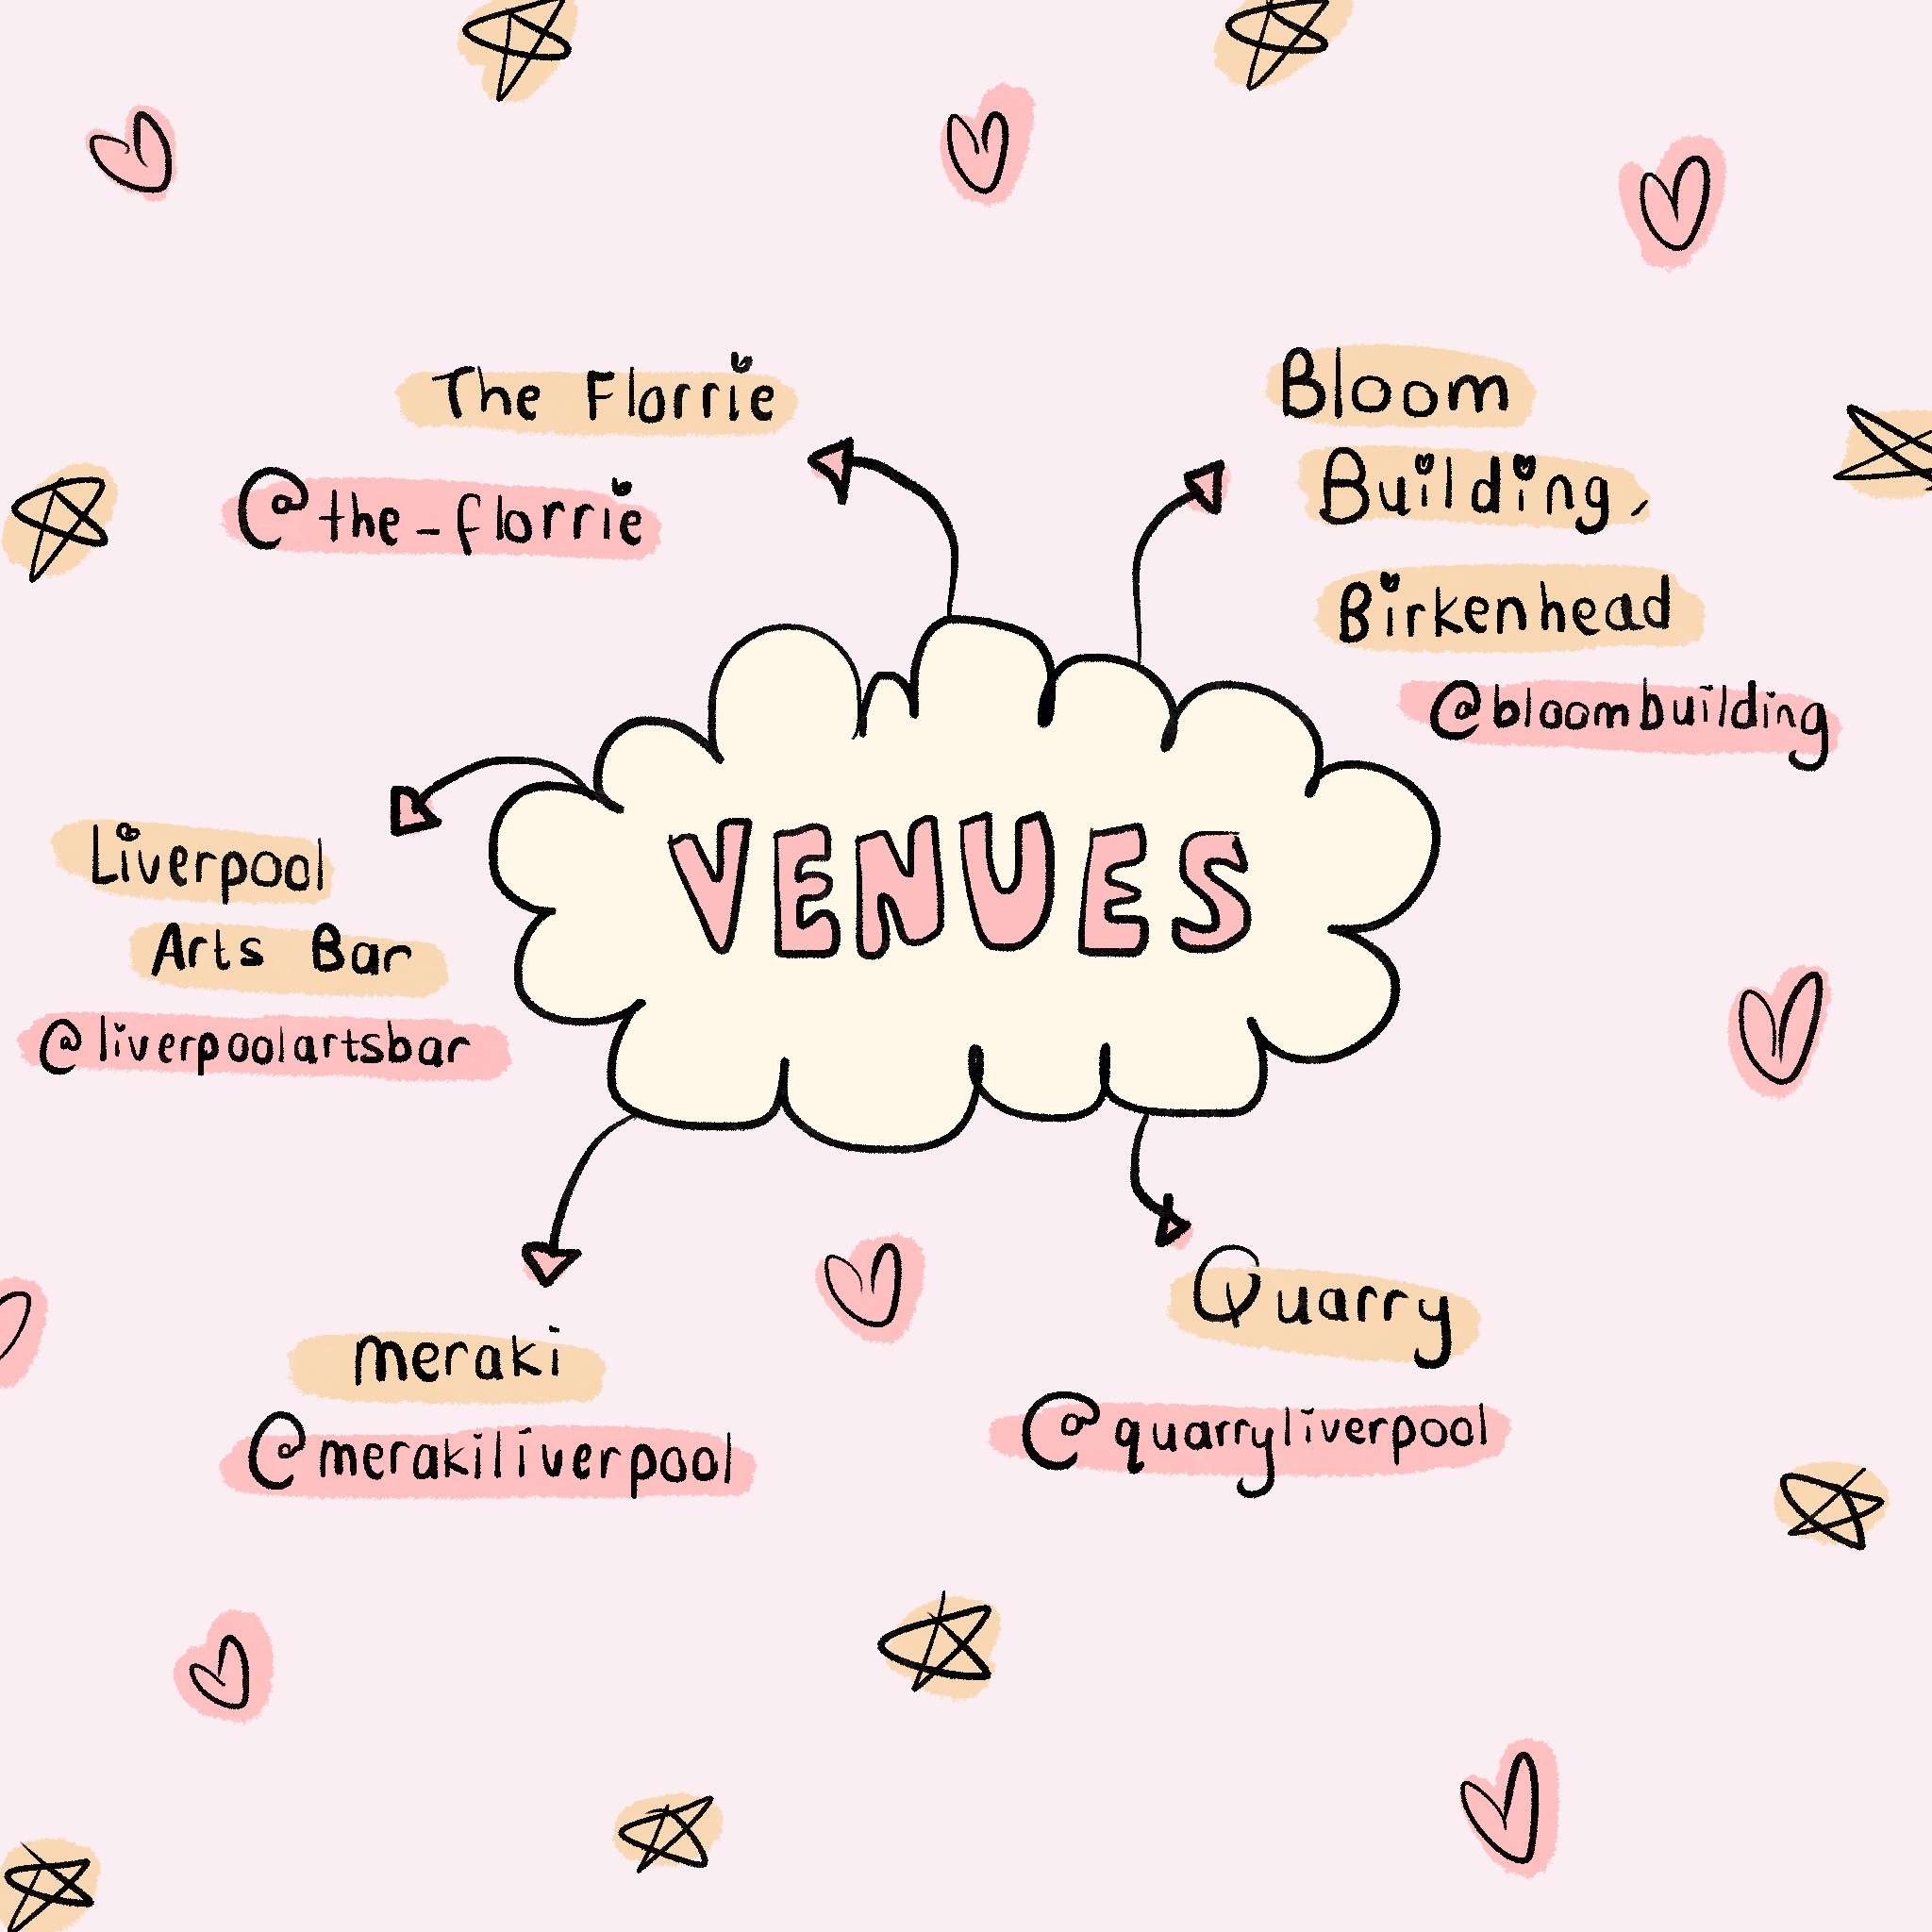 The Florrie
@the_florrie
Bloom
Building,
Birkenhead
@bloombuilding
VENUES
Liverpool
Arts Bar
@liverpoolartsbar
meraki
@merakiliverpool
Quarry
@quarryliverpool